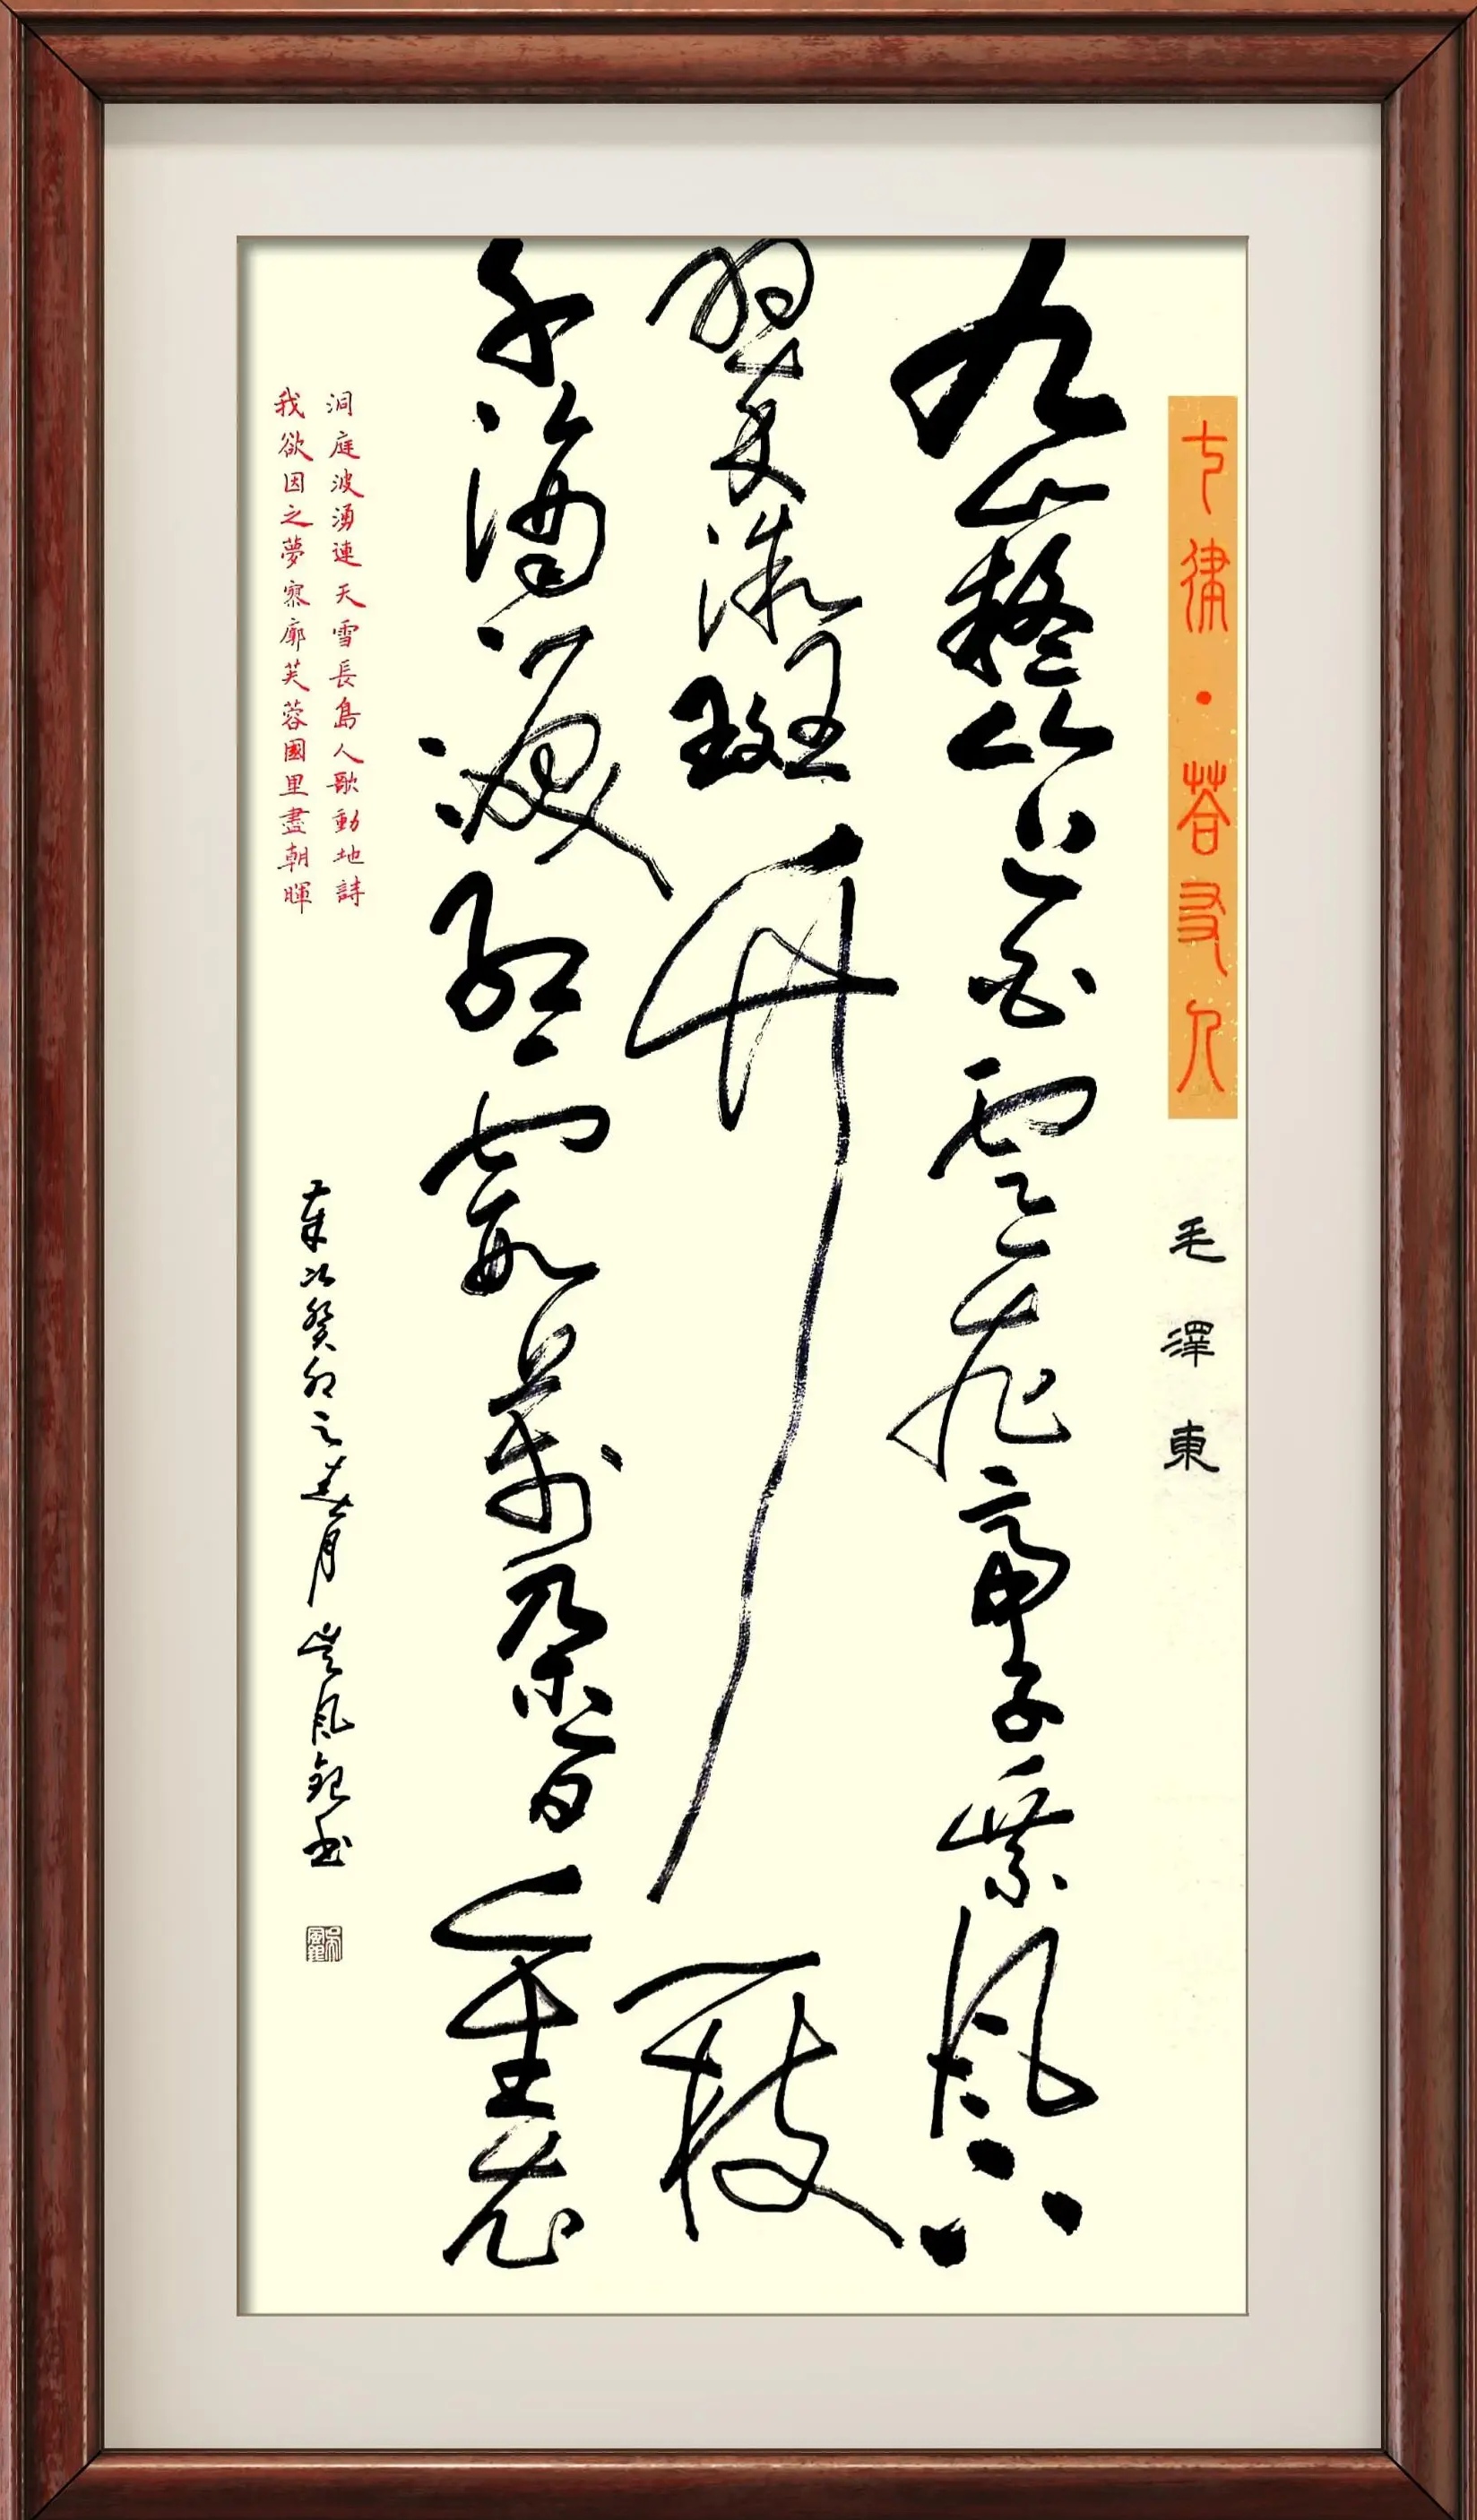 七律·答友人
毛澤東
九嶷山上白雲飛帝子乘風下
翠微斑竹一枝
千滴淚紅霞萬朵百重衣
洞庭波湧連天雪長島人歌動地詩
我欲因之夢寥廓芙蓉國里盡朝暉
歲次癸卯之月風書